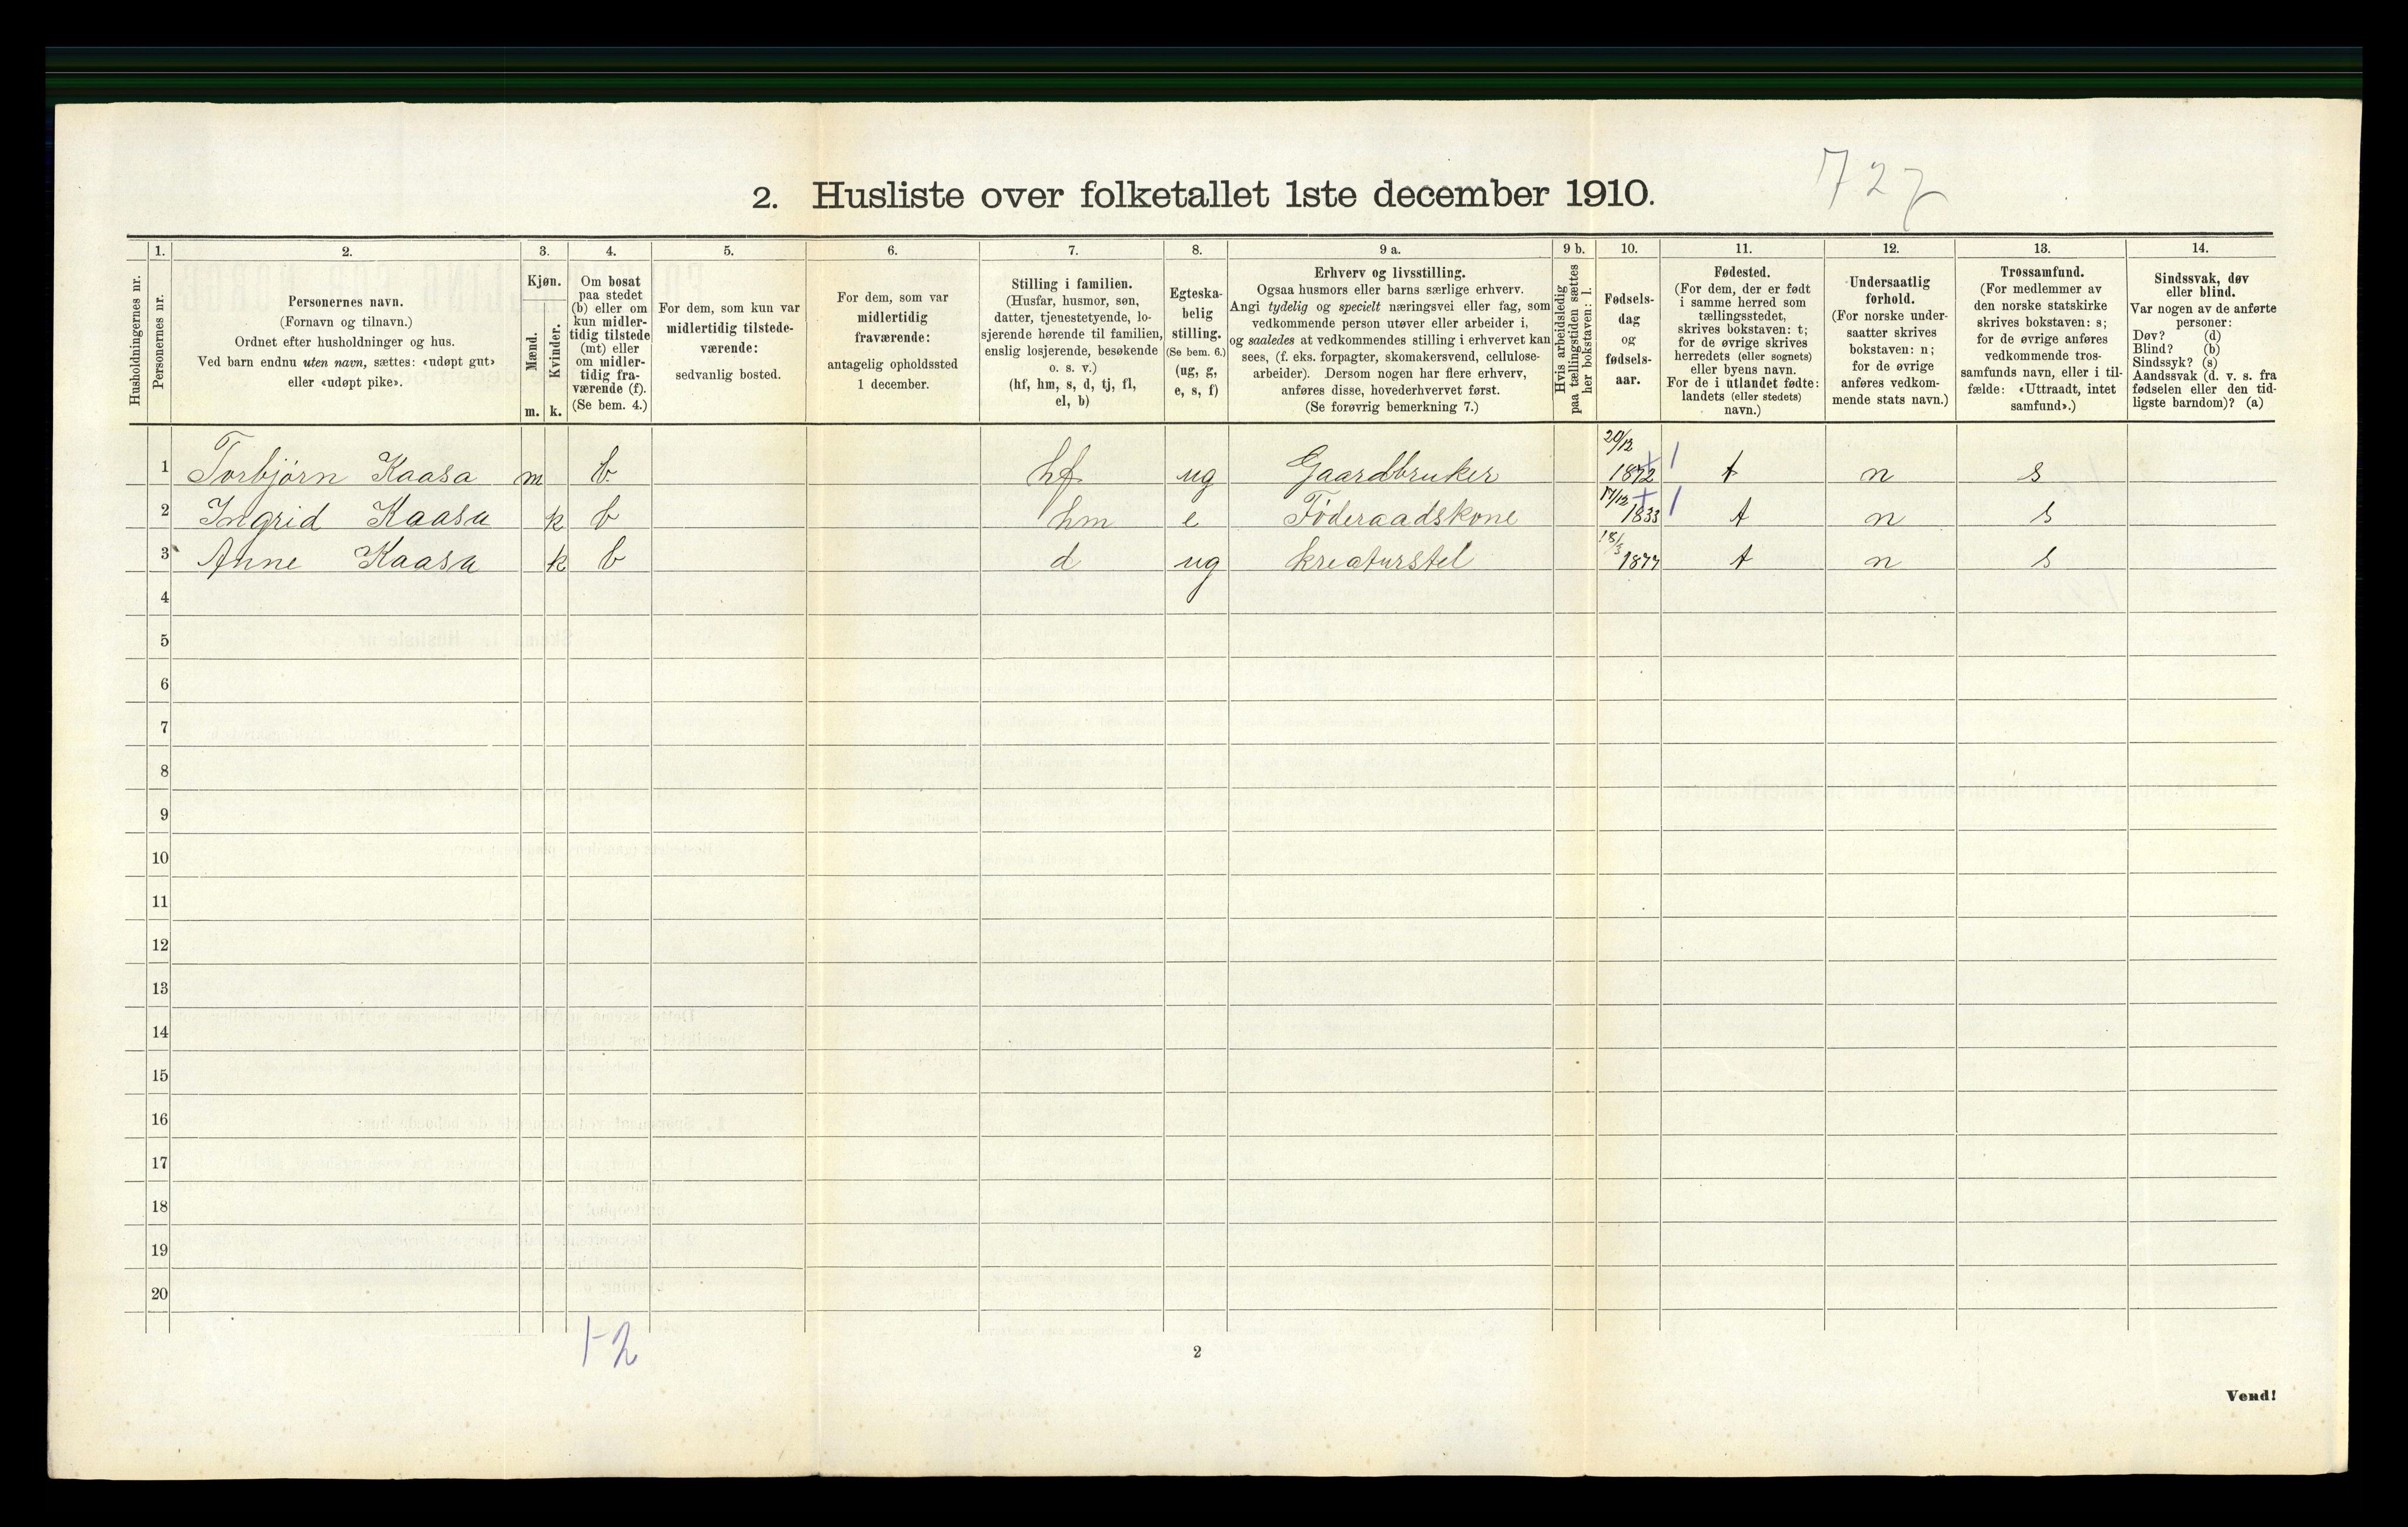 727
2. Husliste over folketallet 1ste december 1910.
Husholdningernes nr.
1.
Personernes nr.
2.
Personernes navn.
(Fornavn og tilnavn.)
Ordnet efter husholdninger og hus.
Ved barn endnu uten navn, sættes: «udøpt gut»
eller «udøpt pike».
3.
Kjøn.
Mænd.
Kvinder.
m. k.
4.
Om bosat
paa stedet
(b) eller om
kun midler-
tidig tilstede
(mt) eller
om midler-
tidig fra-
værende (f).
(Se bem. 4.)
5.
For dem, som kun var
midlertidig tilstede-
værende:
sedvanlig bosted.
6.
For dem, som var
midlertidig
fraværende:
antagelig opholdssted
1 december.
7.
Stilling i familien.
(Husfar, husmor, søn,
datter, tjenestetyende, lo-
sjerende hørende til familien,
enslig losjerende, besøkende
o. s. v.)
(hf, hm, s, d, tj, fl,
el, b)
8.
Egteska-
belig
stilling.
(Se bem. 6.)
(ug, g,
e, s, f)
9 a.
Erhverv og livsstilling.
Ogsaa husmors eller barns særlige erhverv.
Angi tydelig og specielt næringsvei eller fag, som
vedkommende person utøver eller arbeider i,
og saaledes at vedkommendes stilling i erhvervet kan
sees, (f. eks. forpagter, skomakersvend, cellulose-
arbeider). Dersom nogen har flere erhverv,
anføres disse, hovederhvervet først.
(Se forøvrig bemerkning 7.)
9 b.
Hvis arbeidsledig
paa tællingstiden sættes
her bokstaven: l.
10.
Fødsels-
dag
og
fødsels-
aar.
11.
Fødested.
(For dem, der er født
i samme herred som
tællingsstedet,
skrives bokstaven: t;
for de øvrige skrives
herredets (eller sognets)
eller byens navn.
For de i utlandet fødte:
landets (eller stedets)
navn.)
12.
Undersaatlig
forhold.
(For norske under-
saatter skrives
bokstaven: n;
for de øvrige
anføres vedkom-
mende stats navn.)
13.
Trossamfund.
(For medlemmer av
den norske statskirke
skrives bokstaven: s;
for de øvrige anføres
vedkommende tros-
samfunds navn, eller i til-
fælde: «Uttraadt, intet
samfund».)
14.
Sindssvak, døv
eller blind.
Var nogen av de anførte
personer:
Døv? (d)
Blind? (b)
Sindssyk? (s)
Aandssvak (d. v. s. fra
fødselen eller den tid-
ligste barndom)? (a)
20/12
1 Torbjørn Kaasa m b. hf ug Gaardbruker 1872 t n s
17/12
2 Ingrid Kaasa k b hm e Føderaadskone 1833 t n s
18/3
3 Anne Kaasa k b d ug kreaturstel 1877 t n s
4
5
6
7
8
9
10
11
12
13
14
15
16
17
18
19
20
1-2
2
Vend!